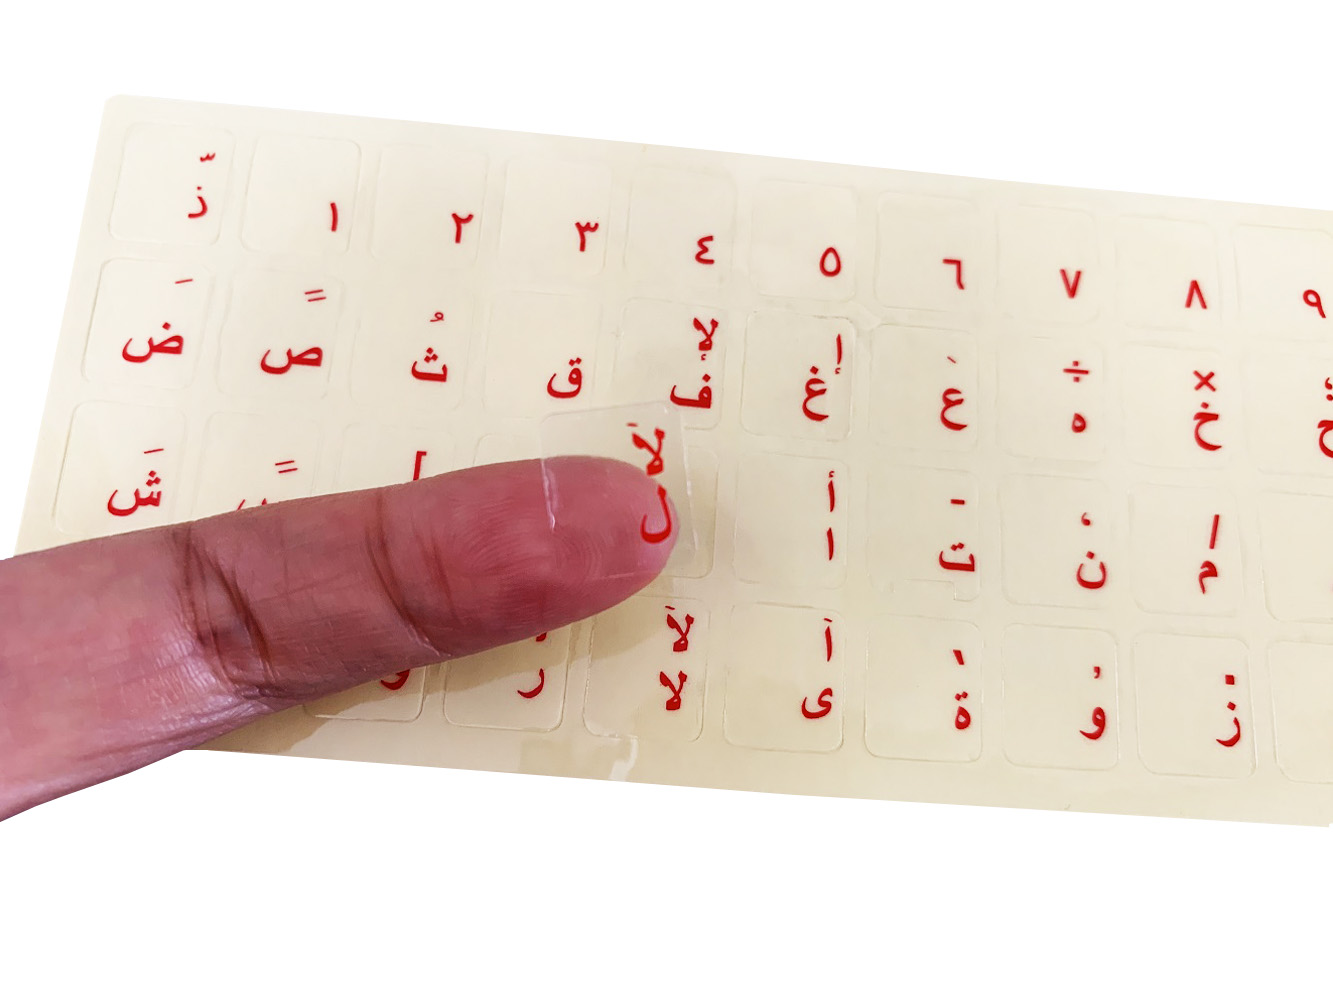 ّ ١ ٢ ٣ ٤ ٥ ٦ ٧ ٨ ٩
ذ
َ ً ُ لإ إ ‘ ÷ ×
ض ص ث ق ف غ ع ه خ
ِ ٍ [ لأ أ - ، /
ش ل ا ت ن م
لآ آ ‘ , .
ر لا ى ة و ز